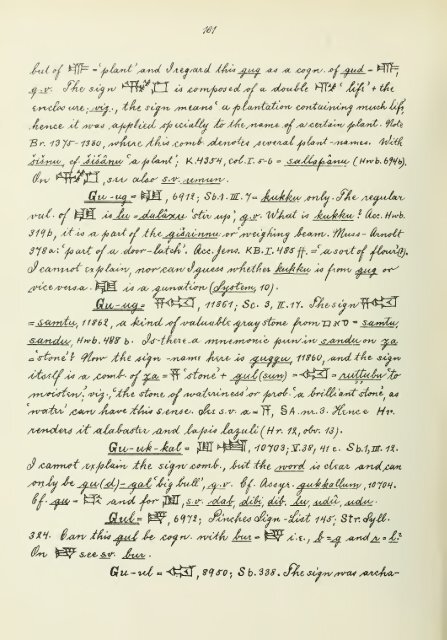 101
but of = 'plant' and I regard this gug as a cogn. of gud =
q.v. The sign is composed of a double 'life' + the
enclosure; viz., the sign means 'a plantation containing much life,
hence it was applied specially to the name of a certain plant. Note
Br. 1375-1380, where this comb. denotes several plant-names. With
šišnu, cf. šišânu 'a plant'; K.4354, col. I. 5-6 = sallapânu (Hwb. 694b).
On , see also s.v. umun.
Gu-ug = , 6912; Sb. 1. III. 7 = kukku only. The regular
val. of is lu = dalâxu 'stir up'; q.v. What is kukku? Acc. Hwb.
319b, it is a part of the gišrinnu or weighing beam. Muss-Arnolt
378a: 'part of a door-latch'. Acc. Jens. KB. I. 485 ff. = 'a sort of flour(?).
I cannot explain, nor can I guess whether kukku is from gug or
vice versa. is a gunation (System, 10).
Gu-ug = , 11861; Sc. 3, II. 17. The sign
= samtu, 11862, a kind of valuable gray stone from = samtu,
sandu, Hwb. 488 b. Is there a mnemonic pun in sandu on za
= 'stone'? Now the sign-name here is guggu, 11860, and the sign
itself is a comb. of za = 'stone' + gul (sun) = = ruttubu 'to
moisten', viz., 'the stone of wateriness' or prob. 'a brilliant stone', as
'water' can have this sense. See s.v. a = , §A. nr. 3. Hence Hr.
renders it alabaster and lapis lazuli (Hr. 12, obv. 13).
Gu-uk-kal = , 10703; V. 38, 41 c. Sb. 1, III. 12.
I cannot explain the sign comb., but the word is clear and can
only be gu(d)-gal 'big bull', q.v. Cf. Assyr. gukkallum, 10704.
Cf. gu = and for , s.v. dab, dibi, dib, lu, udû, udu.
Gul = , 6972; Pinches Sign-List 145; Str. Syll.
324. Can this gul be cogn. with bur = i.e., b = g and r = l?
On see s.v. bur.
Gu-ul = , 8950; Sb. 338. The sign was archa-